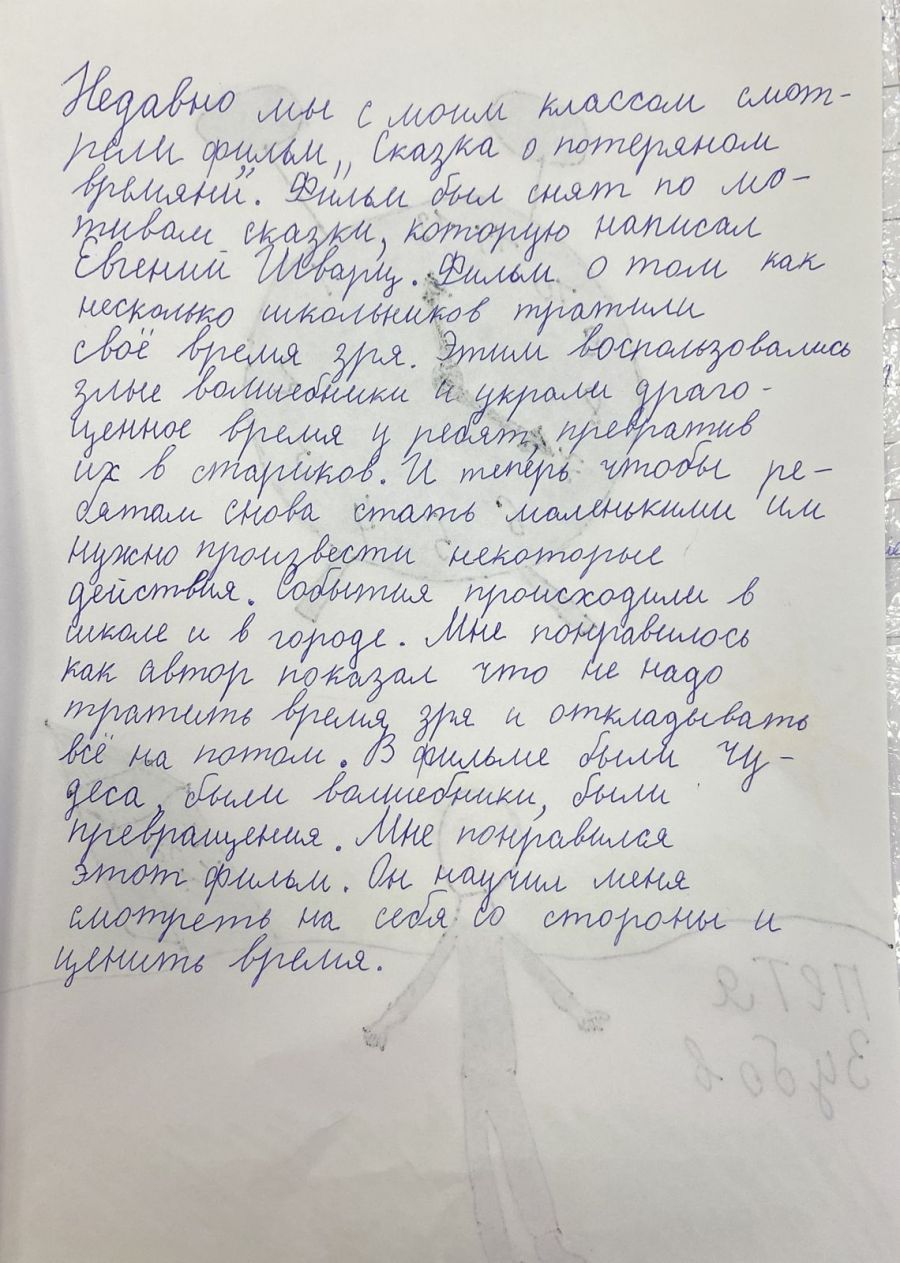 Недавно мы с моим классом смот-
рели фильм „Сказка о потеряном
времяни". Фильм был снят по мо-
тивам сказки, которую написал
Евгений Шварц. Фильм о том как
несколько школьников тратили
своё время зря. Этим воспользовались
злые волшебники и украли драго-
ценное время у ребят, превратив
их в стариков. И теперь чтобы ре-
бятам снова стать маленькими им
нужно произвести некоторые
действия. События происходили в
школе и в городе. Мне понравилось
как автор показал что не надо
тратить время зря и откладывать
всё на потом. В фильме были чу-
деса, были волшебники, были
превращения. Мне понравился
этот фильм. Он научил меня
смотреть на себя со стороны и
ценить время.
Петя
Зубов